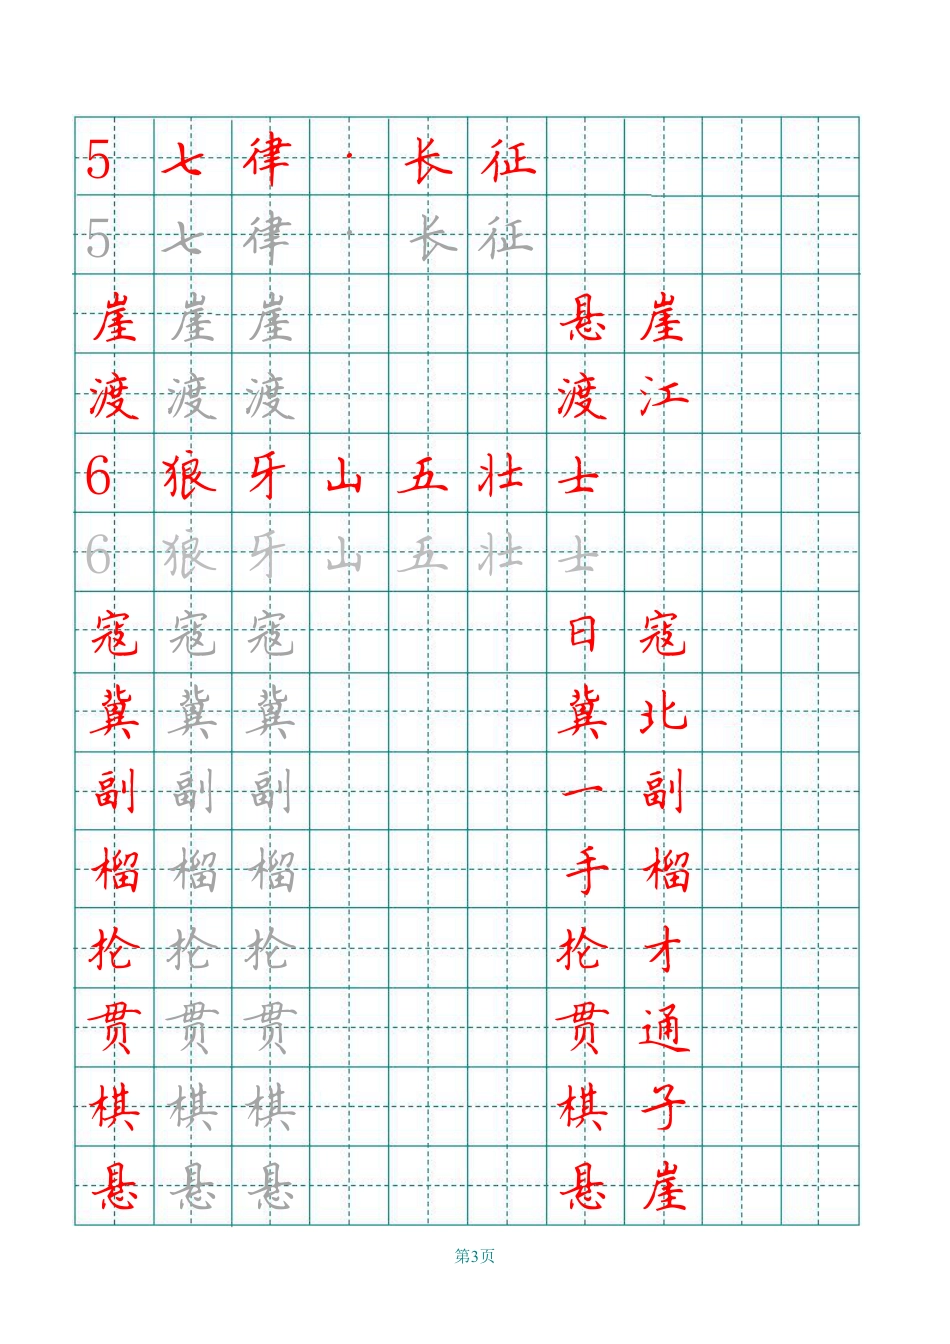 5七律·长征
5七律·长征
崖崖崖 悬崖
渡渡渡 渡江
6狼牙山五壮士
6狼牙山五壮士
寇寇寇 日寇
冀冀冀 冀北
副副副 一副
榴榴榴 手榴
抡抡抡 抡才
贯贯贯 贯通
棋棋棋 棋子
悬悬悬 悬崖
第3页